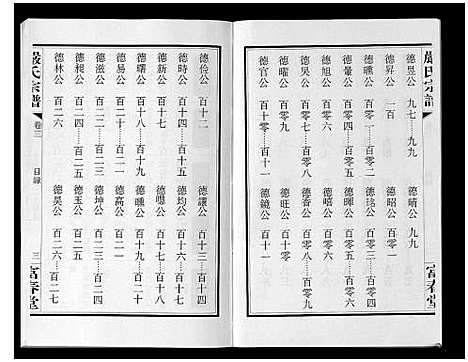 嚴氏宗譜
德昱公 九七……九九
德晴公 九九
德昇公 一百
德昭公 百零一
德曛公 百零一……百零二
德晷公 百零四……百零五
德暉公 百零五……百零六
德旭公 百零六
德晤公 百零六
德昊公 百零七……百零八
德香公 百零八……百零九
德曜公 百零九
德旺公 百零九
德官公 百十零……百十一
德鏡公 百十一
富春堂
德俭公 百十二
德讓公 百十三……百十四
德時公 百十四……百十五
德均公 百十六……百十七
德新公 百十七
德曙公 百十八……百十九
德曛公 百十九……百二十
德易公 百二十
德高公 百二一
德滋公 百二二……百二三
德坤公 百二三……百二四
德昶公 百二四……百二五
德玉公 百二五
德林公 百二六
德昊公 百二六……百二七
嚴氏宗譜
卷三
目錄
三
富春堂